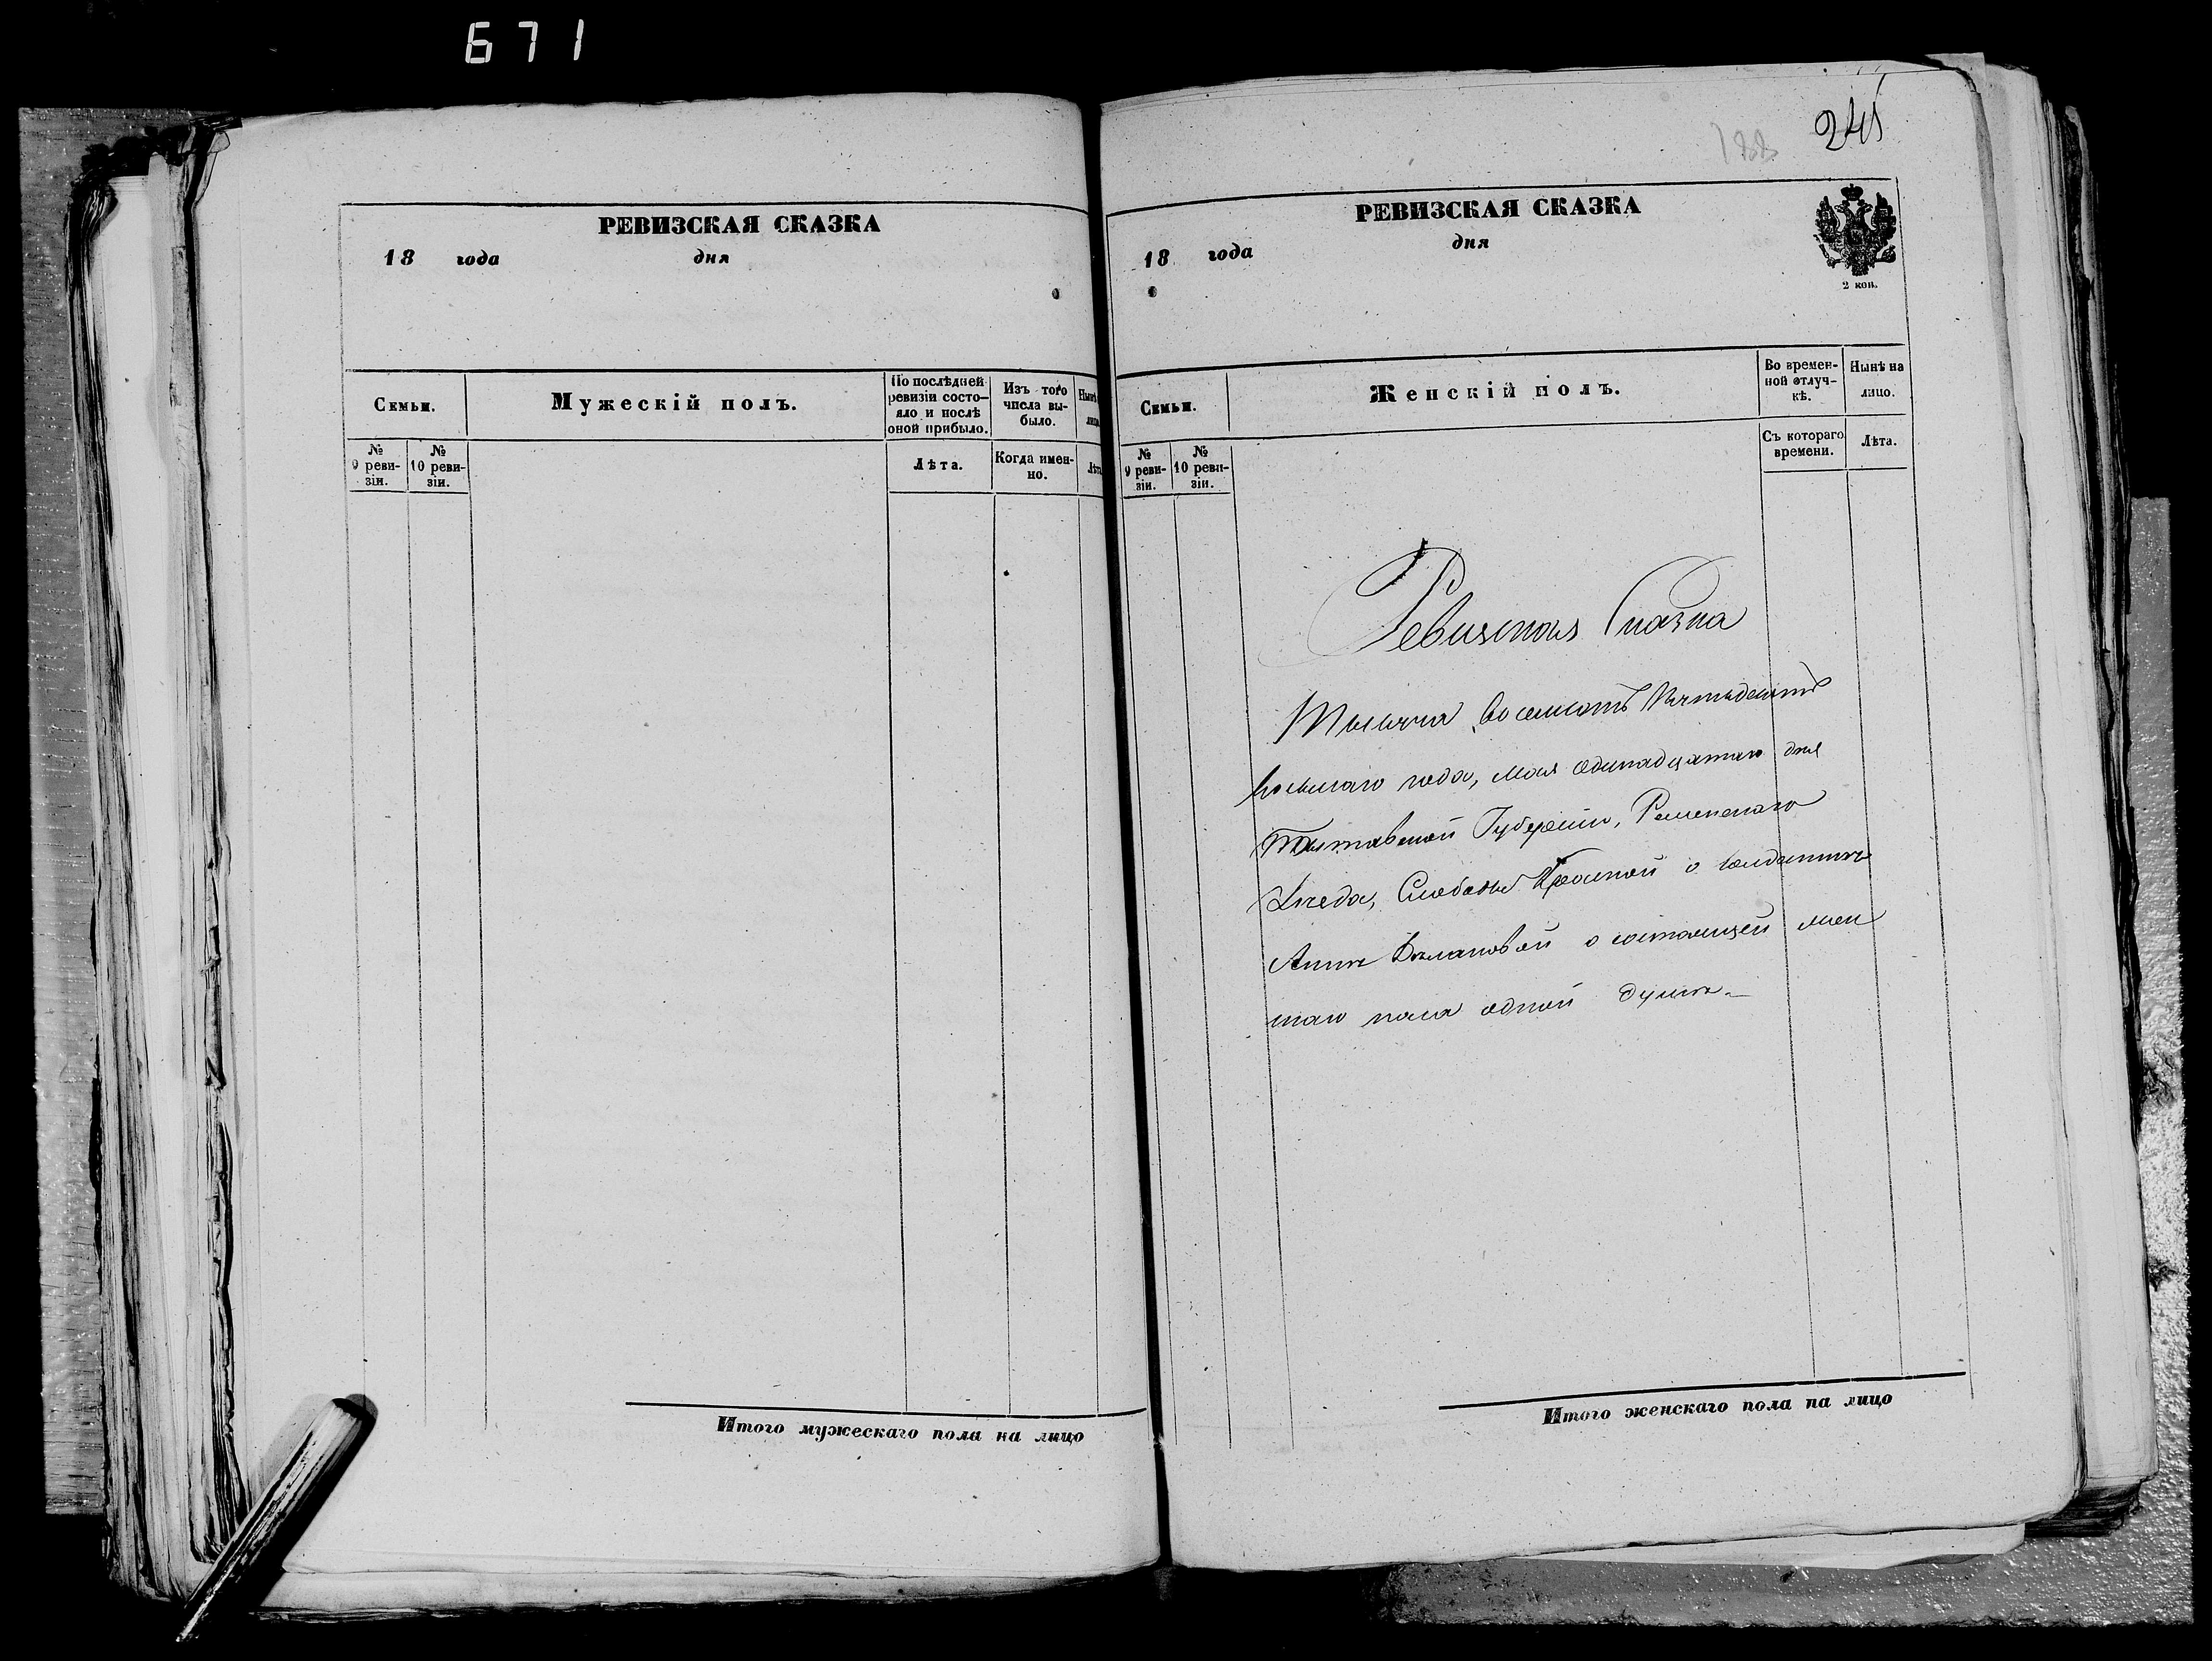 671
РЕВИЗСКАЯ СКАЗКА
18 года дня
Семьи.
Мужескій полъ.
По послѣдней ревизіи состояло и послѣ оной прибыло.
Изъ того числа выбыло.
№ 9 ревизіи.
№ 10 ревизіи.
Лѣта.
Когда именно.
Итого мужескаго пола на лицо
245
188
РЕВИЗСКАЯ СКАЗКА
18 года дня
2 коп.
Семьи.
Женскій полъ.
Во временной отлучкѣ.
Нынѣ на лицо.
№ 9 ревизіи.
№ 10 ревизіи.
Съ котораго времени.
Лѣта.
Ревизская Сказка
Тысяча восемсотъ Пятьдесятъ
восьмаго года, Мая одинадцатаго дня
Полтавской Губерніи, Роменскаго
Уезда, Слободы о солдаткѣ
Аннѣ о состоящей жен
скаго пола одной душѣ.
Итого женскаго пола на лицо